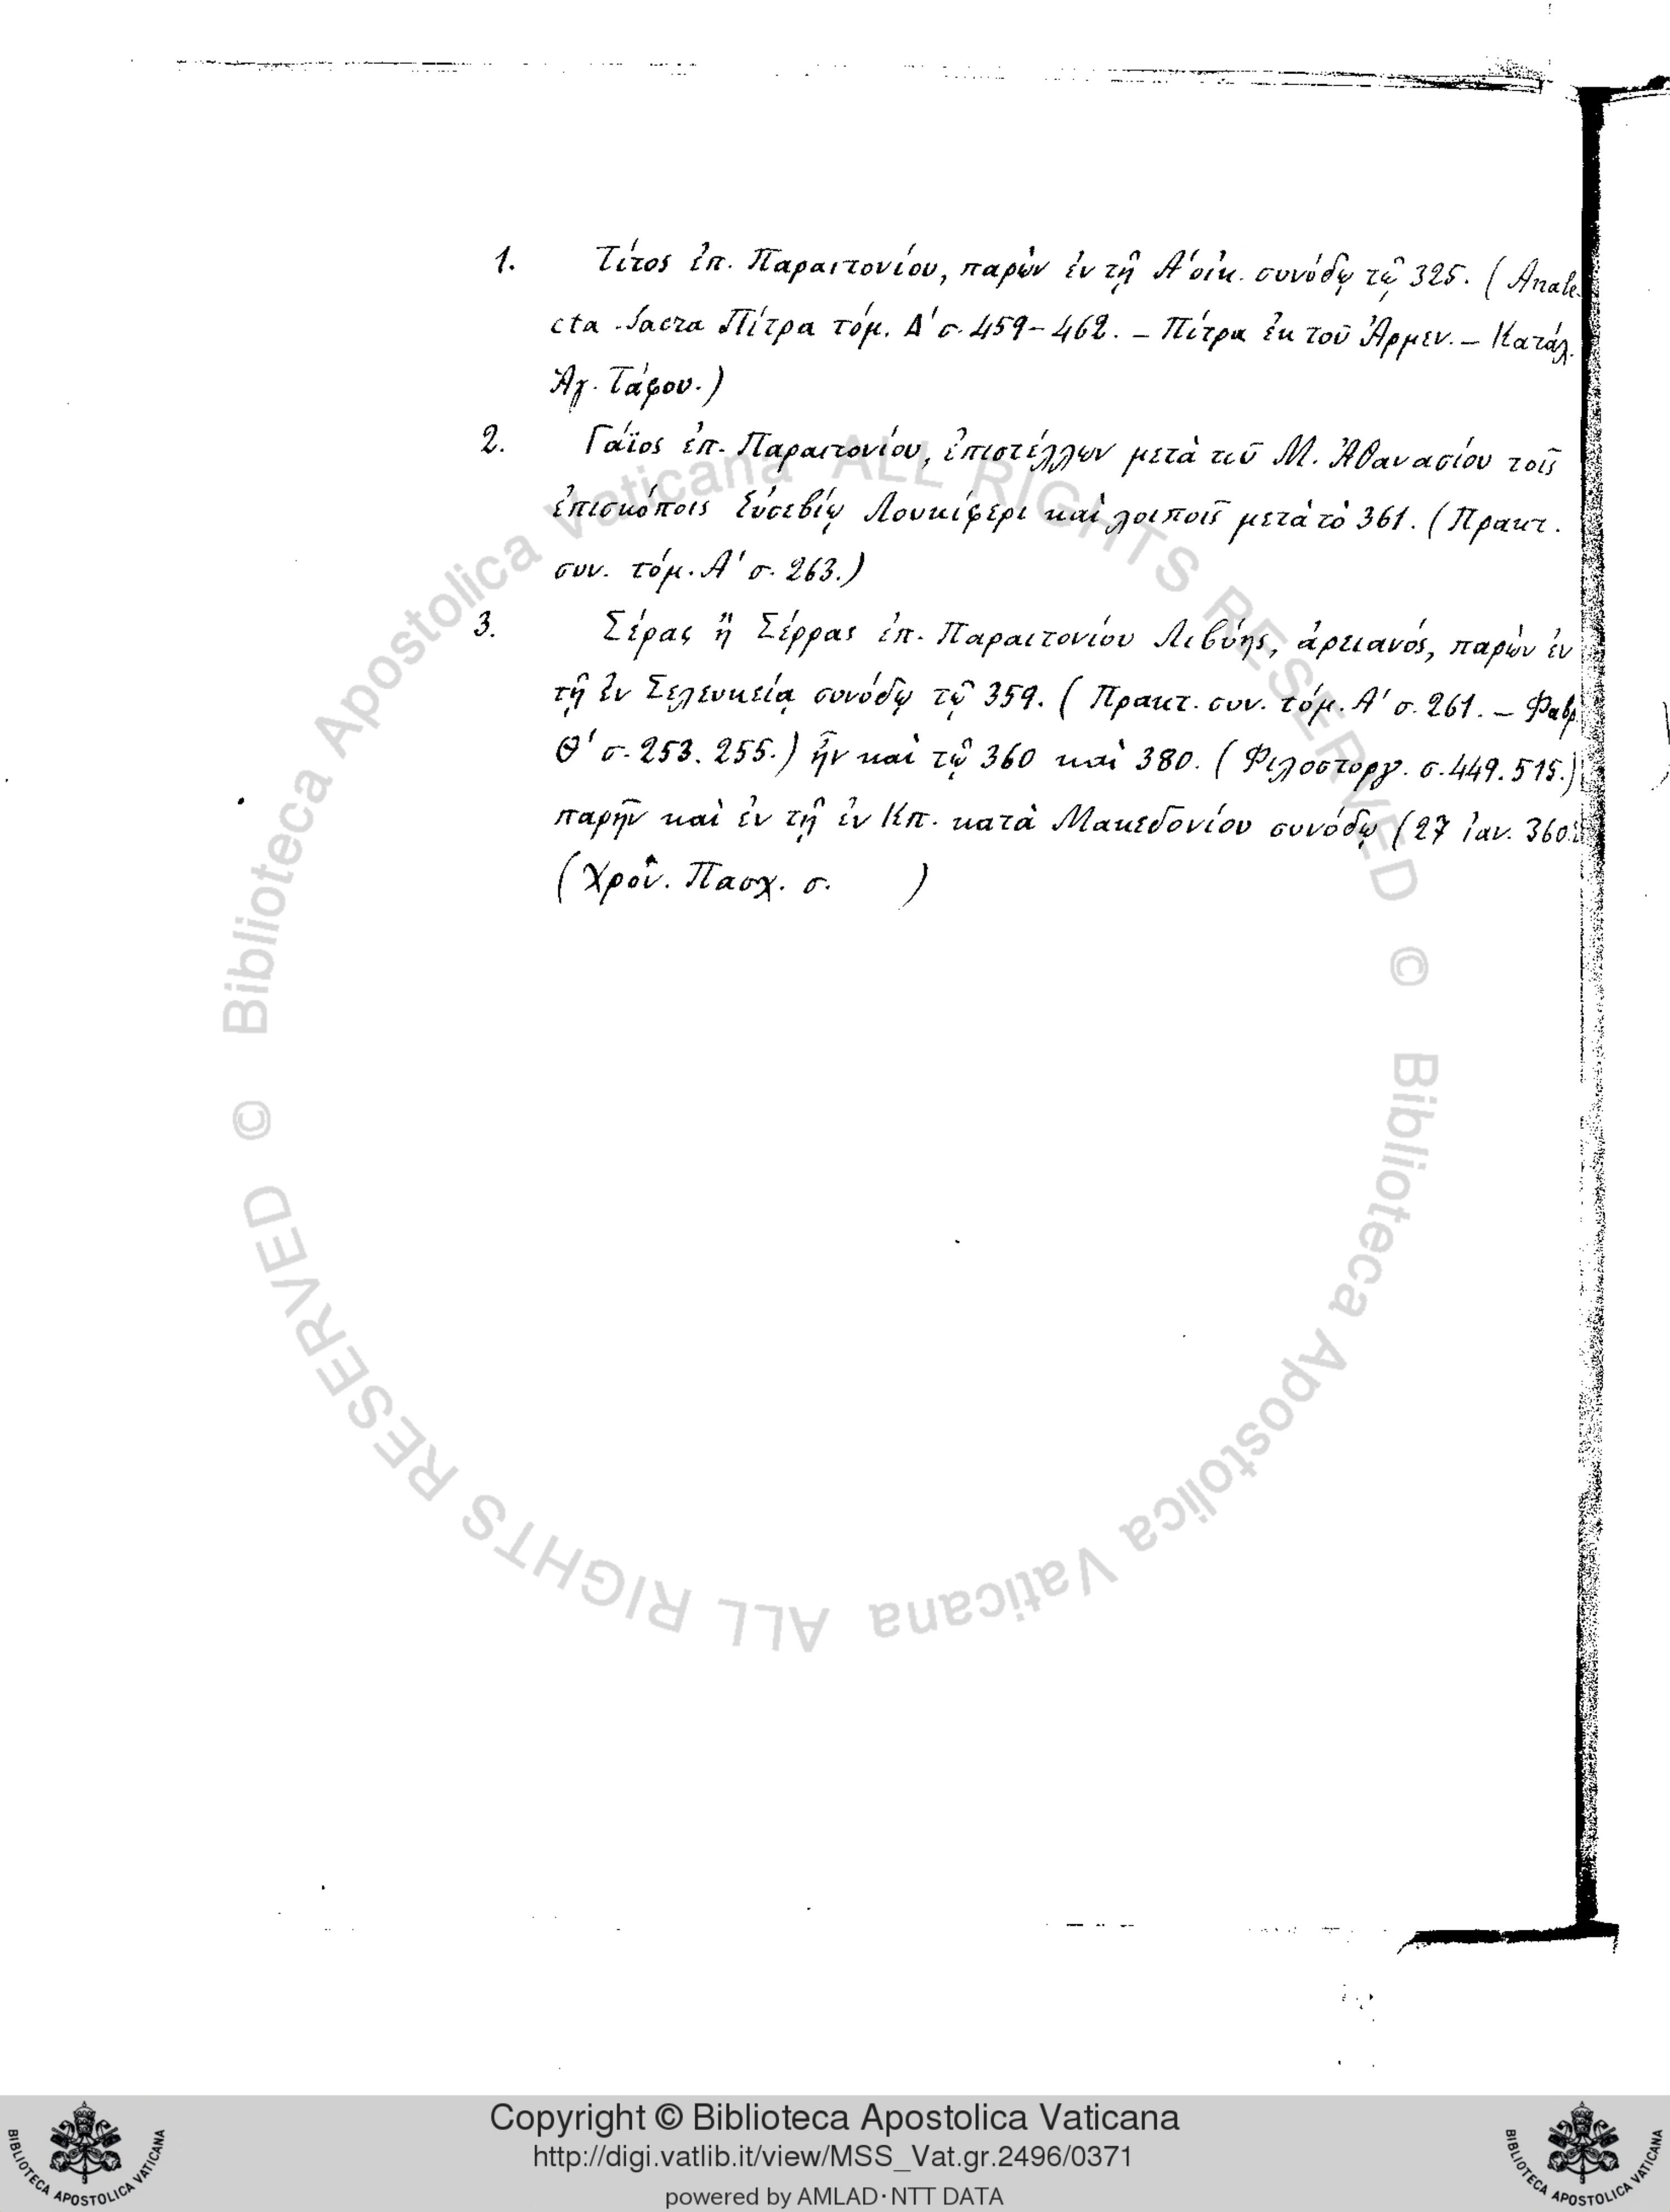 1. Τίτος ἐπ. Παραιτονίου, παρὼν ἐν τῇ Α' οἰκ. συνόδῳ τῷ 325. (Anale-
cta Sacra Πίτρα τόμ. Δ' σ. 459-462. – Πίτρα ἐκ τοῦ Ἀρμεν. – Κατάλ.
Ἁγ. Τάφου.)
2. Γάϊος ἐπ. Παραιτονίου, ἐπιστέλλων μετὰ τοῦ Μ. Ἀθανασίου τοῖς
ἐπισκόποις Εὐσεβίῳ Λουκίφερι καὶ λοιποῖς μετὰ τὸ 361. (Πρακτ.
συν. τόμ. Α' σ. 263.)
3. Σέρας ἢ Σέρρας ἐπ. Παραιτονίου Λιβύης, ἀρειανός, παρὼν ἐν
τῇ ἐν Σελευκείᾳ συνόδῳ τῷ 359. (Πρακτ. συν. τόμ. Α' σ. 261. – Φαβρ.
Θ' σ. 253. 255.) ἦν καὶ τῷ 360 καὶ 380. (Φιλοστοργ. σ. 449. 515.)
παρῆν καὶ ἐν τῇ ἐν Κπ. κατὰ Μακεδονίου συνόδῳ (27 ἰαν. 360.
(Χρον. Πασχ. σ. )
© Biblioteca Apostolica Vaticana ALL RIGHTS RESERVED © Biblioteca Apostolica Vaticana ALL RIGHTS RESERVED
BIBLIOTECA APOSTOLICA VATICANA
Copyright © Biblioteca Apostolica Vaticana
http://digi.vatlib.it/view/MSS_Vat.gr.2496/0371
powered by AMLAD·NTT DATA
BIBLIOTECA APOSTOLICA VATICANA